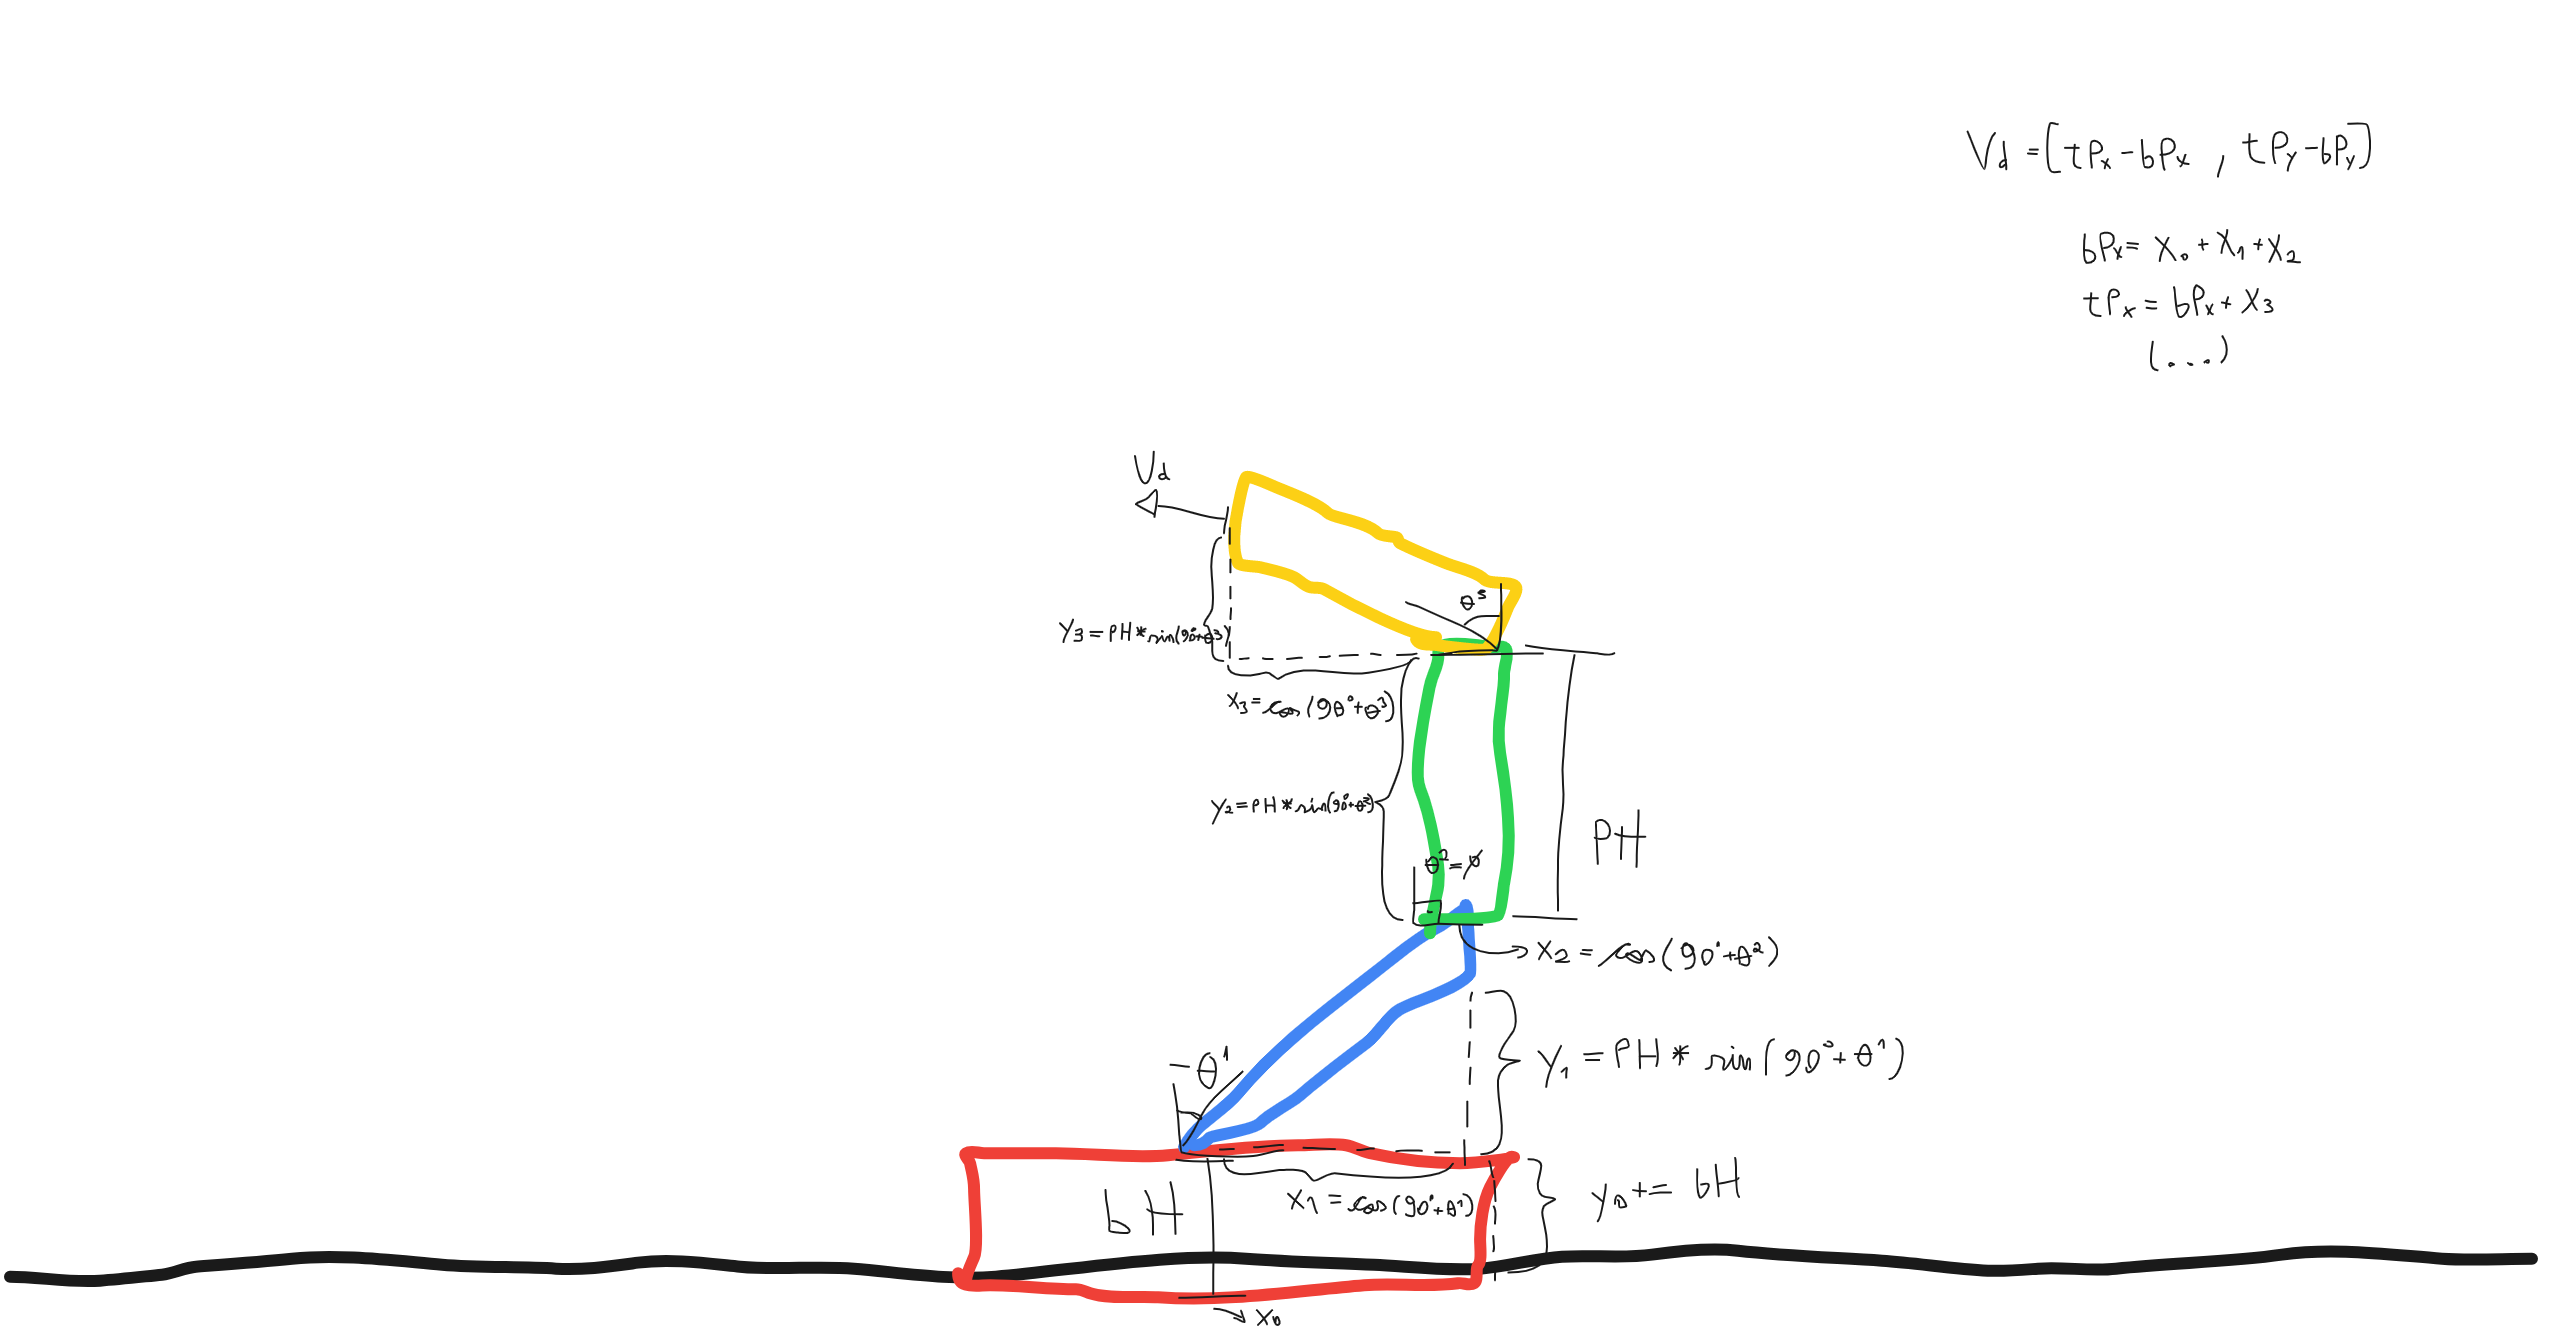 Vd = [tPx - bPx , tPy - bPy]
bPx = x₀ + x₁ + x₂
tPx = bPx + x₃
(...)
Vd
θ³
y₃ = PH * sin(90° + θ³)
x₃ = cos(90° + θ³)
y₂ = PH * sin(90° + θ²)
PH
θ² = 0
x₂ = cos(90° + θ²)
-θ¹
y₁ = PH * sin(90° + θ¹)
bH
x₁ = cos(90° + θ¹)
y₀ += bH
x₀